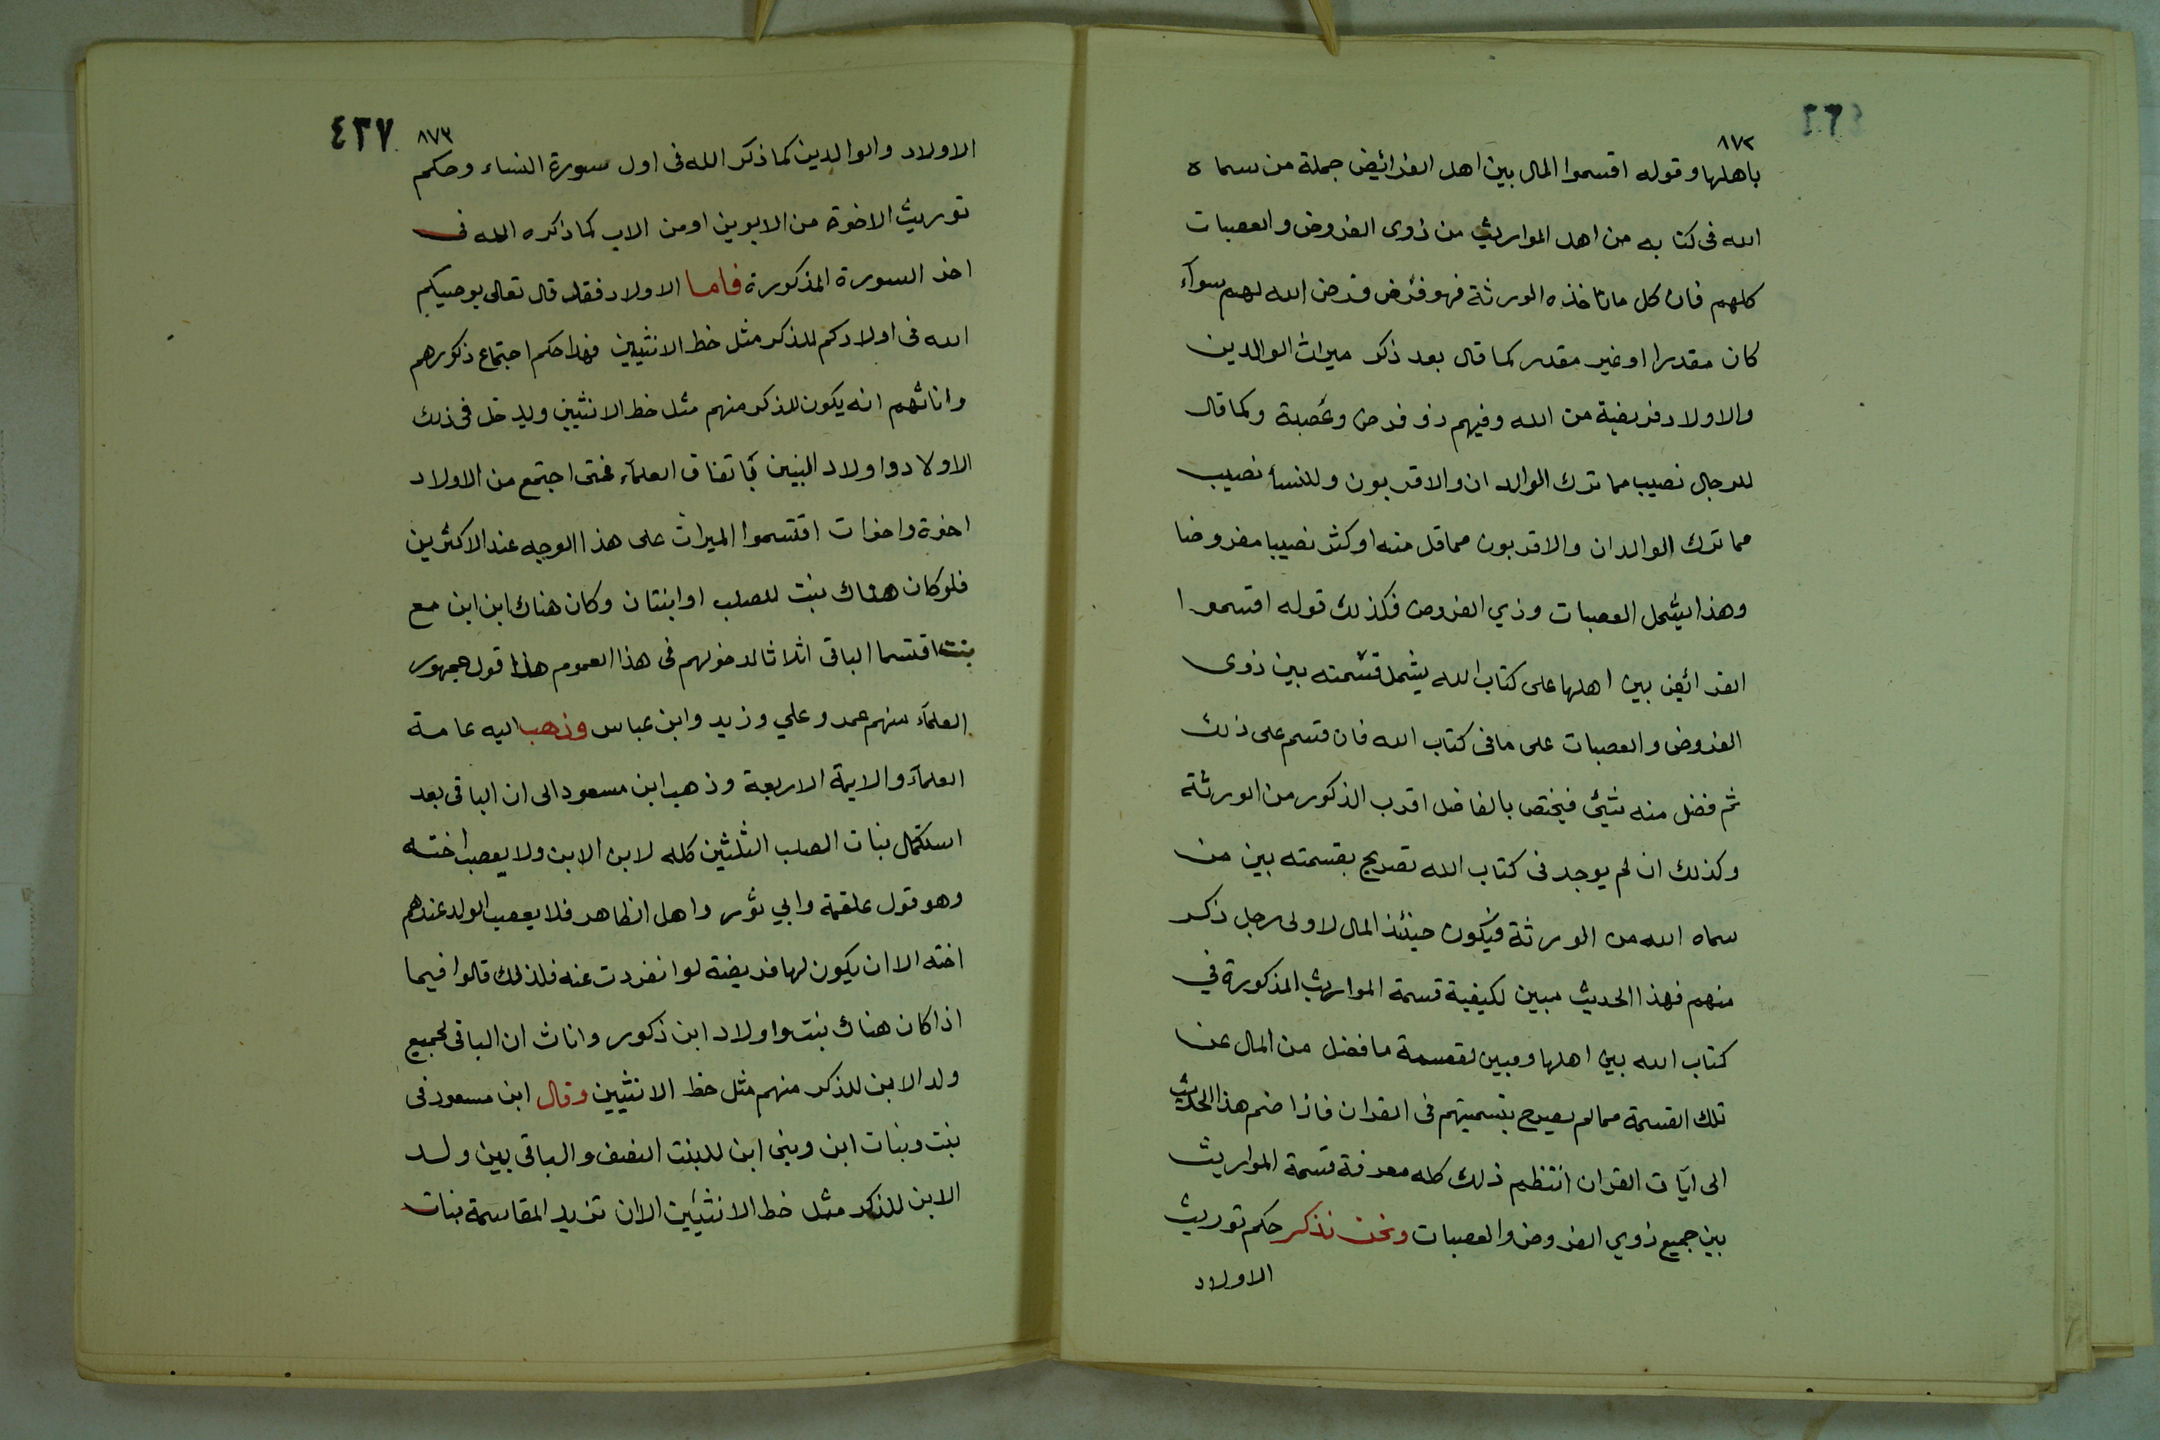 ٨٧٢
باهلها وقوله اقسموا المال بين اهل الفرائيض جملة من سماه
الله فى كتابه من اهل المواريث من ذوى الفروض والعصبات
كلهم فان كل ما تاخذه الورثة فهو فرض فرض الله لهم سوآء
كان مقدرا او غير مقدر كما قال بعد ذكر ميراث الوالدين
والاولاد فريضة من الله وفيهم ذو فرض وعصبة وكما قال
للرجال نصيب مما ترك الوالدان والاقربون وللنسأ نصيب
مما ترك الوالدان والاقربون مما قل منه او كثر نصيبا مفروضا
وهذا يشمل العصبات وذي الفروض فكذلك قوله اقسموا
الفرائض بين اهلها على كتاب الله يشمل قسمته بين ذوى
الفروض والعصبات على ما فى كتاب الله فان قسم على ذلك
ثم فضل منه شيئ فيختص بالفاضل اقرب الذكور من الورثة
وكذلك ان لم يوجد فى كتاب الله تصريح بقسمته بين من
سماه الله من الورثة فيكون حينئذ المال لاولى رجل ذكر
منهم فهذا الحديث مبين لكيفية قسمة المواريث المذكورة في
كتاب الله بين اهلها ومبين لقسمة ما فضل من المال عن
تلك القسمة مما لم يصرح بتسميتهم فى القران فاذا ضم هذا الحديث
الى آيات القران انتظم ذلك كله معرفة قسمة المواريث
بين جميع ذوي الفروض والعصبات ونحن نذكر حكم توريث
الاولاد
٤٣٧
٨٧٣
الاولاد والوالدين كما ذكر الله فى اول سورة النساء وحكم
توريث الاخوة من الابوين او من الاب كما ذكره الله فى
اخر السورة المذكورة فاما الاولاد فقد قال تعالى يوصيكم
الله فى اولادكم للذكر مثل حظ الانثيين فهذا حكم اجتماع ذكورهم
واناثهم انه يكون للذكر منهم مثل حظ الانثيين ويدخل فى ذلك
الاولاد واولاد البنين باتفاق العلمآء فمتى اجتمع من الاولاد
اخوة واخوات اقتسموا الميراث على هذا الوجه عند الاكثرين
فلو كان هناك بنت للصلب او ابنتان وكان هناك ابن ابن مع
بنت اقتسما الباقى اثلاثا لدخولهم فى هذا العموم هذا قول جمهور
العلمآء منهم عمر وعلي وزيد وابن عباس وذهب اليه عامة
العلمآء والايمة الاربعة وذهب ابن مسعود الى ان الباقى بعد
استكمال بنات الصلب الثلثين كله لابن الابن ولا يعصب اخته
وهو قول علقمة وابي ثور واهل الظاهر فلا يعصب الولد عندهم
اخته الا ان يكون لها فريضة لو انفردت عنه فلذلك قالوا فيما
اذا كان هناك بنت واولاد ابن ذكور واناث ان الباقى لجميع
ولد الابن للذكر منهم مثل حظ الانثيين وقال ابن مسعود فى
بنت وبنات ابن وبنى ابن للبنت النصف والباقى بين ولد
الابن للذكر مثل حظ الانثيين الا ان تزيد المقاسمة بنات